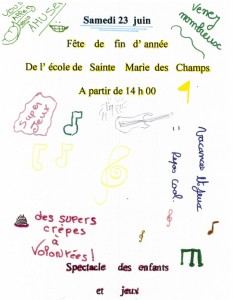 Samedi 23 juin
Venez nombreux
Fête de fin d'année
De l'école de Sainte Marie des Champs
A partir de 14 h 00
Super jeux
Vacances
Repos cool
des supers
crêpes
à
volontées!
Spectacle des enfants
et jeux